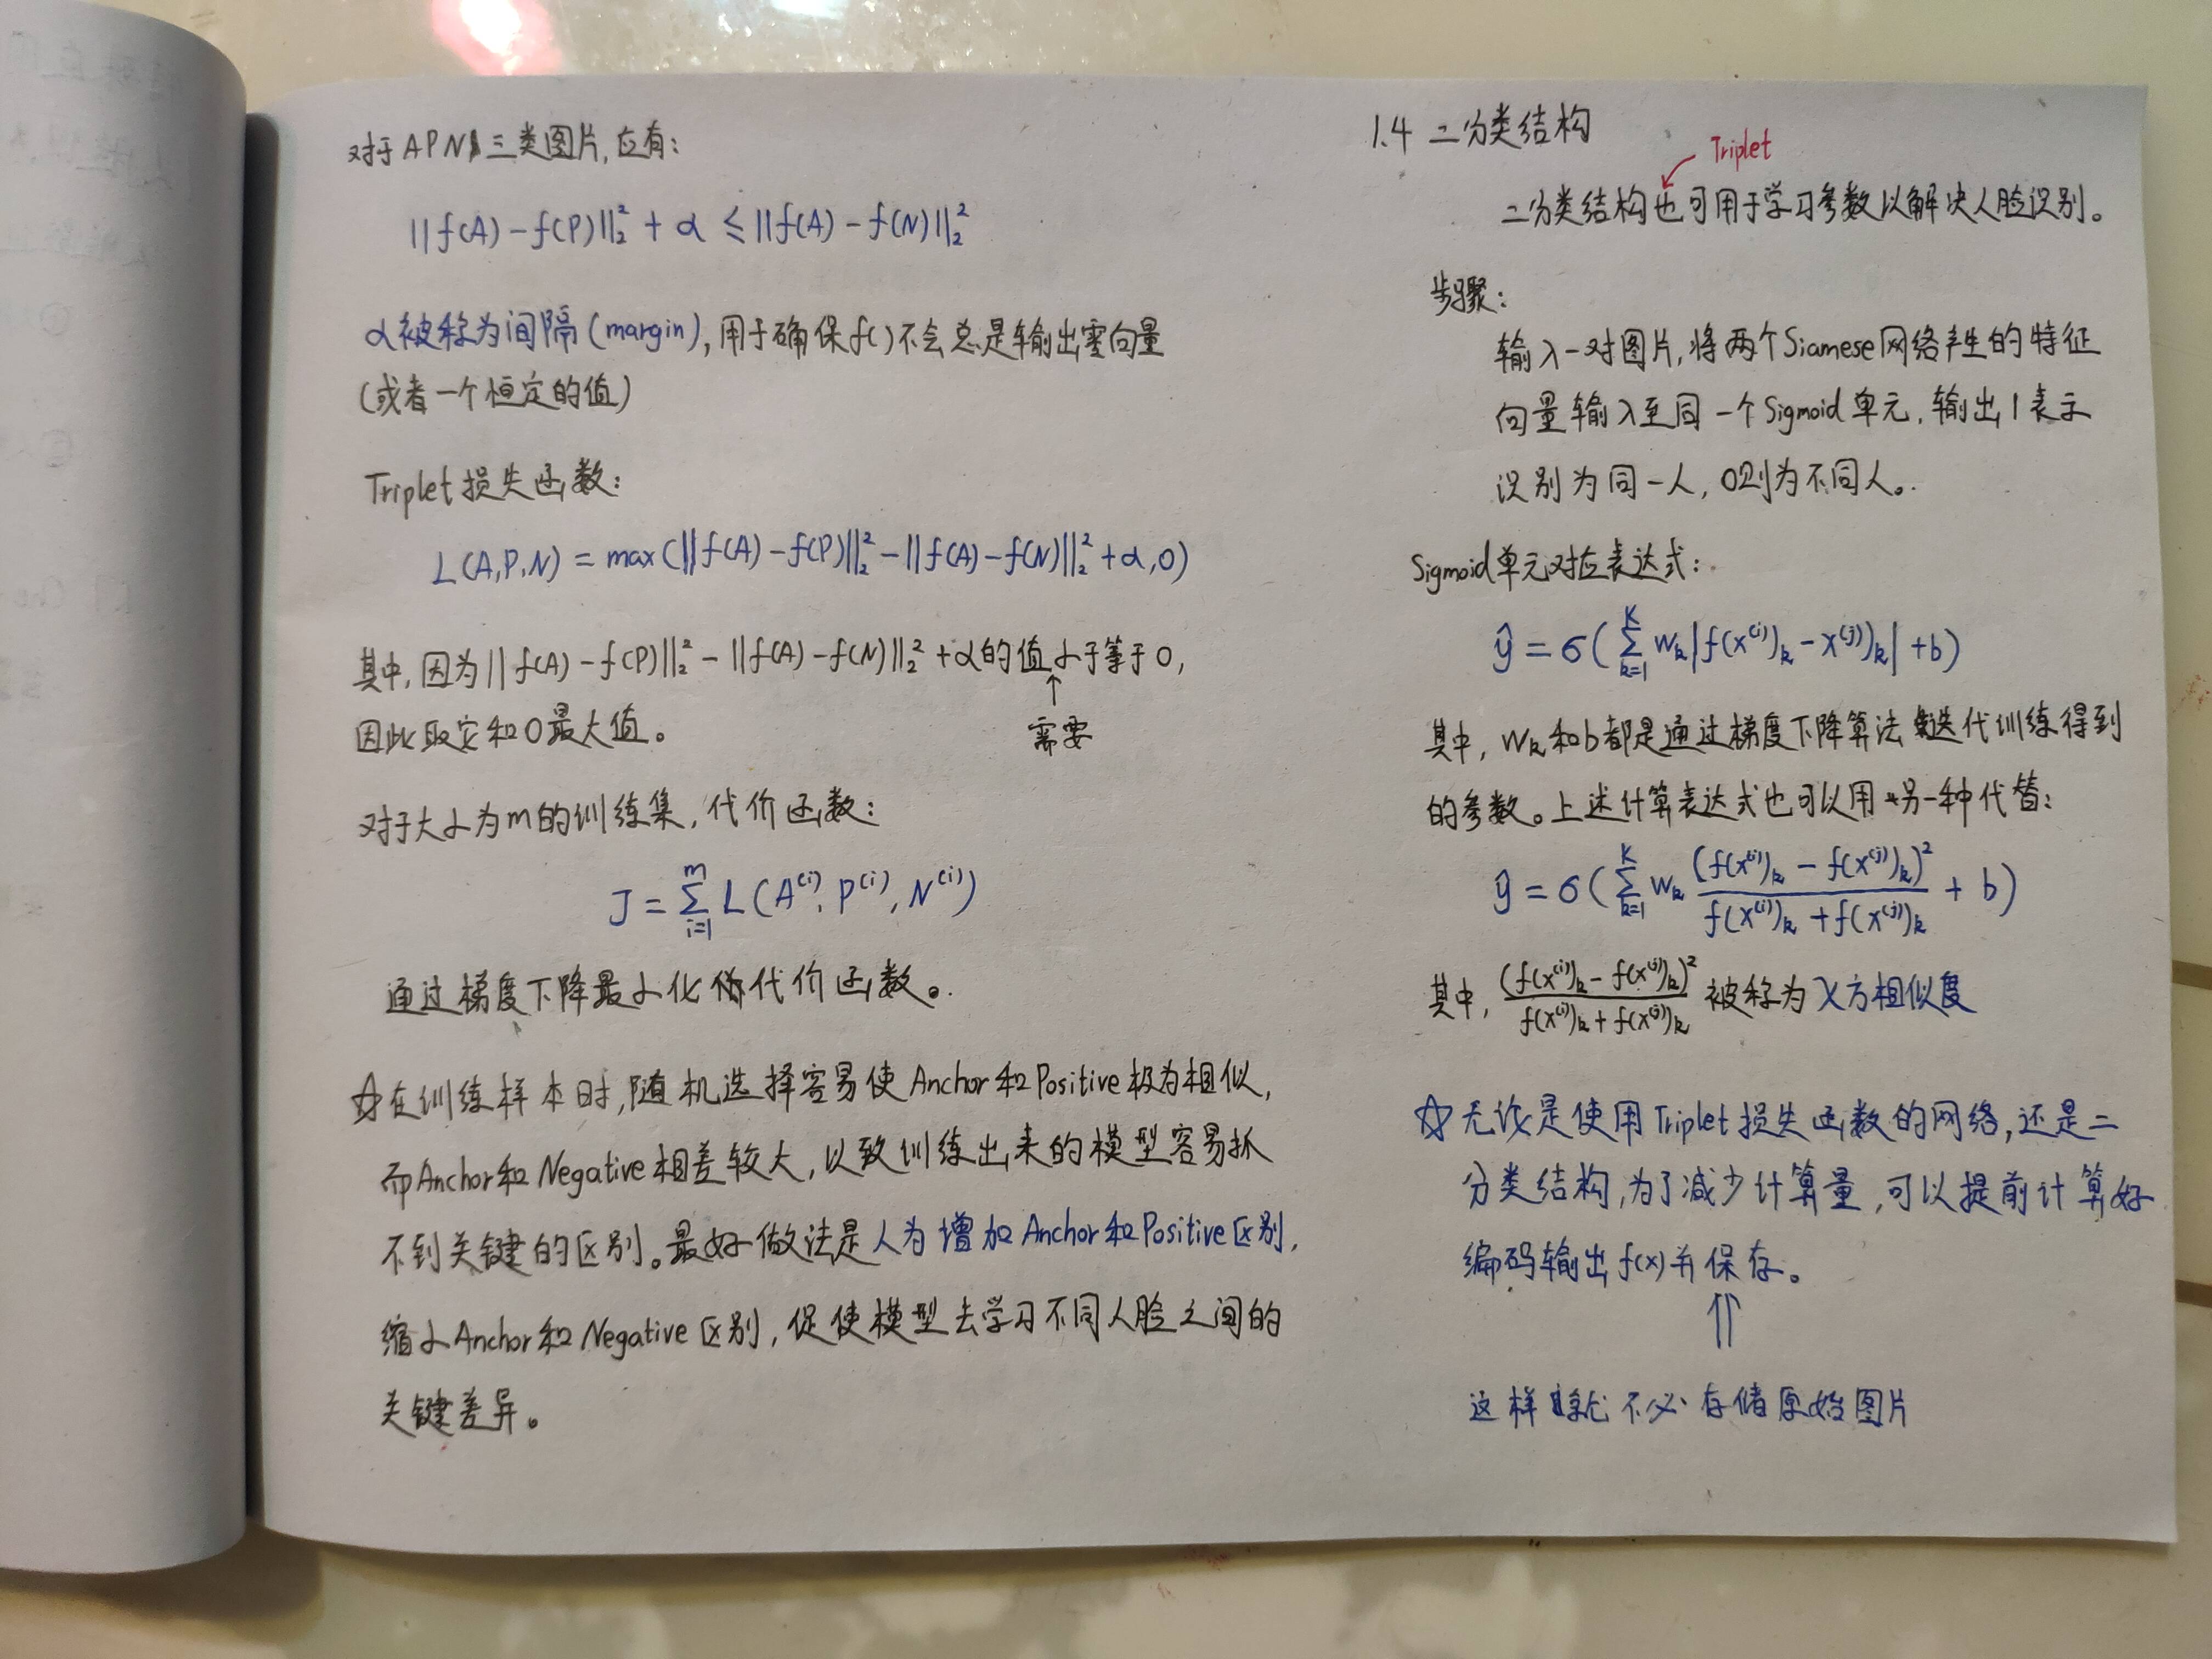 对于APN三类图片,应有:
||f(A)-f(P)||₂² + α ≤ ||f(A)-f(N)||₂²
α被称为间隔(margin),用于确保f()不会总是输出零向量
(或者一个恒定的值)
Triplet损失函数:
L(A,P,N) = max(||f(A)-f(P)||₂² - ||f(A)-f(N)||₂² + α, 0)
其中,因为||f(A)-f(P)||₂² - ||f(A)-f(N)||₂² + α的值小于等于0,
↑
需要
因此取它和0最大值。
对于大小为m的训练集,代价函数:
J = Σᵢ₌₁ᵐ L(A⁽ⁱ⁾, P⁽ⁱ⁾, N⁽ⁱ⁾)
通过梯度下降最小化代价函数。
☆在训练样本时,随机选择容易使Anchor和Positive极为相似,
而Anchor和Negative相差较大,以致训练出来的模型容易抓
不到关键的区别。最好做法是人为增加Anchor和Positive区别,
缩小Anchor和Negative区别,促使模型去学习不同人脸之间的
关键差异。
1.4 二分类结构
Triplet
二分类结构也可用于学习参数以解决人脸识别。
步骤:
输入一对图片,将两个Siamese网络产生的特征
向量输入至同一个Sigmoid单元,输出1表示
识别为同一人,0则为不同人。
Sigmoid单元对应表达式:
ŷ = σ(Σₖ₌₁ᴷ wₖ|f(x⁽ⁱ⁾)ₖ - x⁽ʲ⁾)ₖ| + b)
其中,wₖ和b都是通过梯度下降算法迭代训练得到
的参数。上述计算表达式也可以用另一种代替:
ŷ = σ(Σₖ₌₁ᴷ wₖ (f(x⁽ⁱ⁾)ₖ - f(x⁽ʲ⁾)ₖ)² / (f(x⁽ⁱ⁾)ₖ + f(x⁽ʲ⁾)ₖ) + b)
其中, (f(x⁽ⁱ⁾)ₖ - f(x⁽ʲ⁾)ₖ)² / (f(x⁽ⁱ⁾)ₖ + f(x⁽ʲ⁾)ₖ) 被称为χ方相似度
☆无论是使用Triplet损失函数的网络,还是二
分类结构,为了减少计算量,可以提前计算好
编码输出f(x)并保存。
⇑
这样就不必存储原始图片